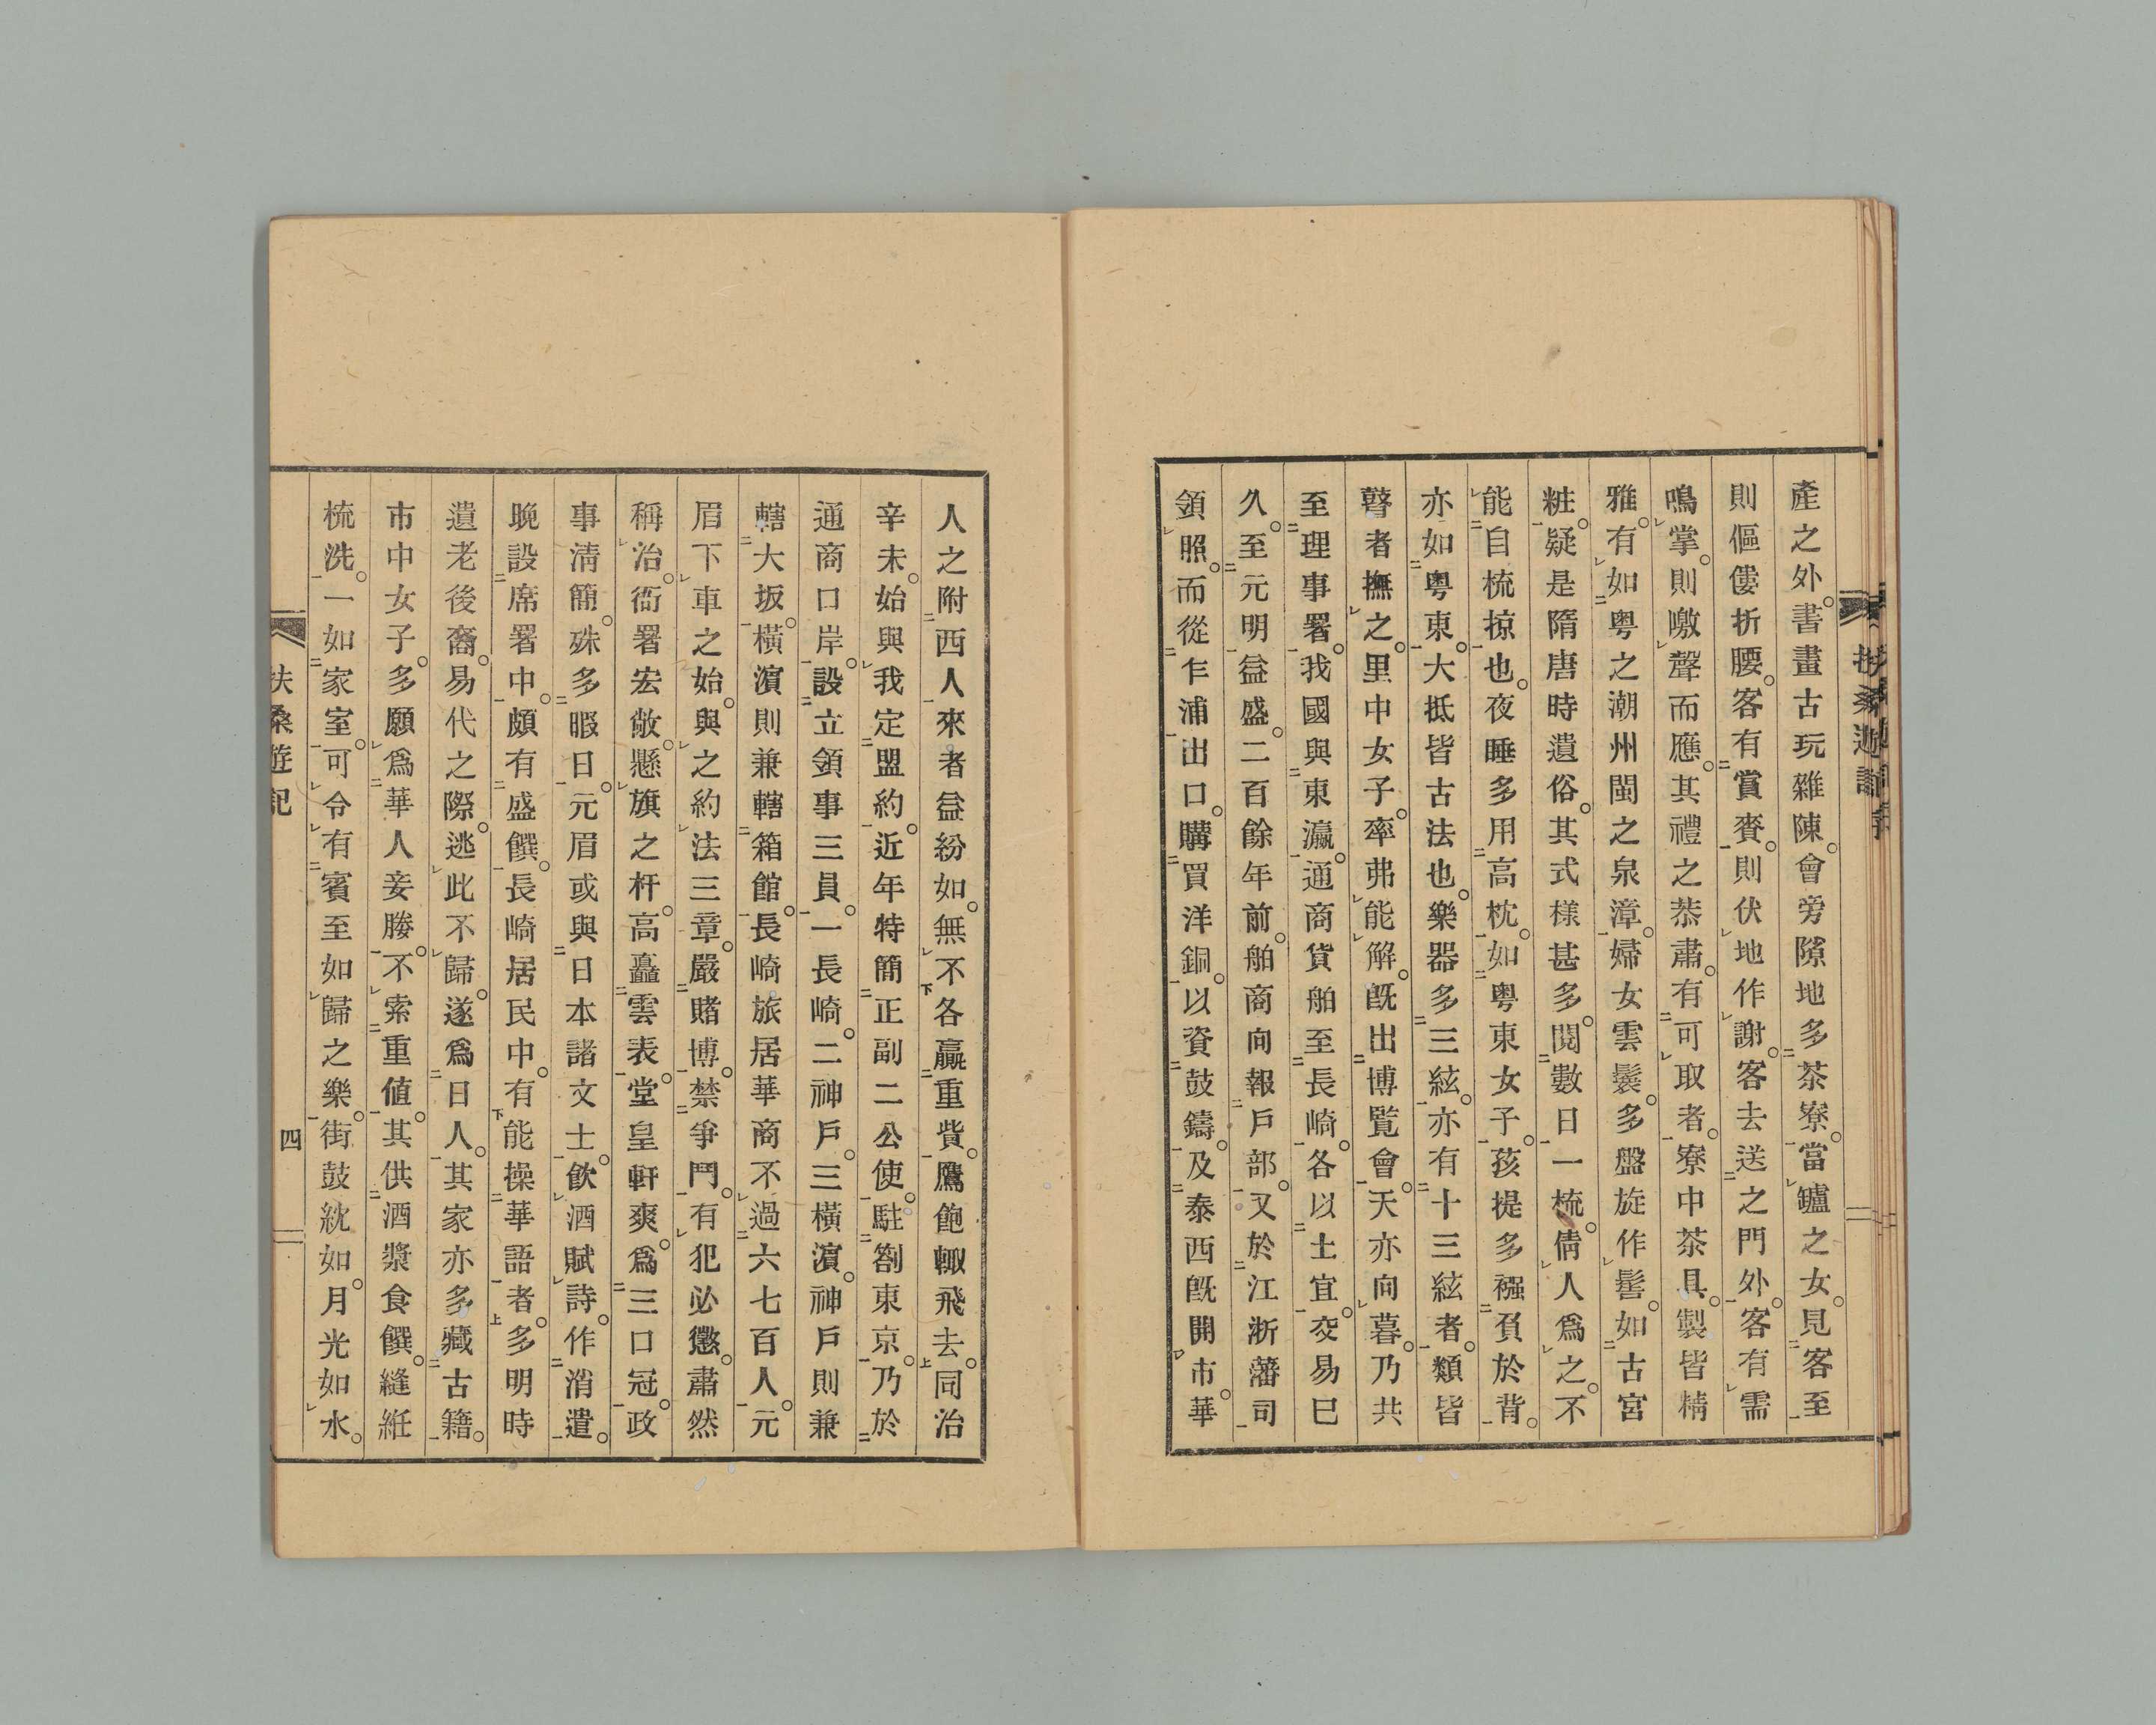 產之外。書畫古玩雜陳。會旁隙地多茶寮。當鑪之女。見客至
則傴僂折腰。客有賞賚。則伏地作謝。客去送之門外。客有需
鳴掌。則噭聲而應。其禮之恭肅。有可取者。寮中茶具。製皆精
雅。有如粵之潮州閩之泉漳。婦女雲鬟。多盤旋作髻。如古宮
粧。疑是隋唐時遺俗。其式樣甚多。閱數日一梳。倩人爲之。不
能自梳掠也。夜睡多用高枕。如粵東女子。孩提多襁負於背。
亦如粵東。大抵皆古法也。樂器多三絃。亦有十三絃者。類皆
瞽者撫之。里中女子。率弗能解。旣出博覽會。天亦向暮。乃共
至理事署。我國與東瀛。通商貨舶至長崎。各以土宜。交易已
久。至元明益盛。二百餘年前。舶商向報戶部。又於江浙藩司
領照。而從乍浦出口。購買洋銅。以資鼓鑄。及泰西旣開市。華
人之附西人來者益紛如。無不各贏重貲。鷹飽輙飛去。同治
辛未。始與我定盟約。近年特簡正副二公使。駐劄東京。乃於
通商口岸。設立領事三員。一長崎。二神戶。三橫濱。神戶則兼
轄大坂。橫濱則兼轄箱館。長崎旅居華商不過六七百人。元
眉下車之始。與之約法三章。嚴賭博。禁爭鬥。有犯必懲。肅然
稱治。衙署宏敞。懸旗之杆。高矗雲表。堂皇軒爽。爲三口冠。政
事淸簡。殊多暇日。元眉或與日本諸文士。飮酒賦詩。作消遣。
晚設席署中。頗有盛饌。長崎居民中。有能操華語者。多明時
遺老後裔。易代之際。逃此不歸。遂爲日人。其家亦多藏古籍。
市中女子。多願爲華人妾媵。不索重值。其供酒漿食饌。縫紝
梳洗。一如家室。可令有賓至如歸之樂。街鼓紞如。月光如水。
扶桑遊記
四